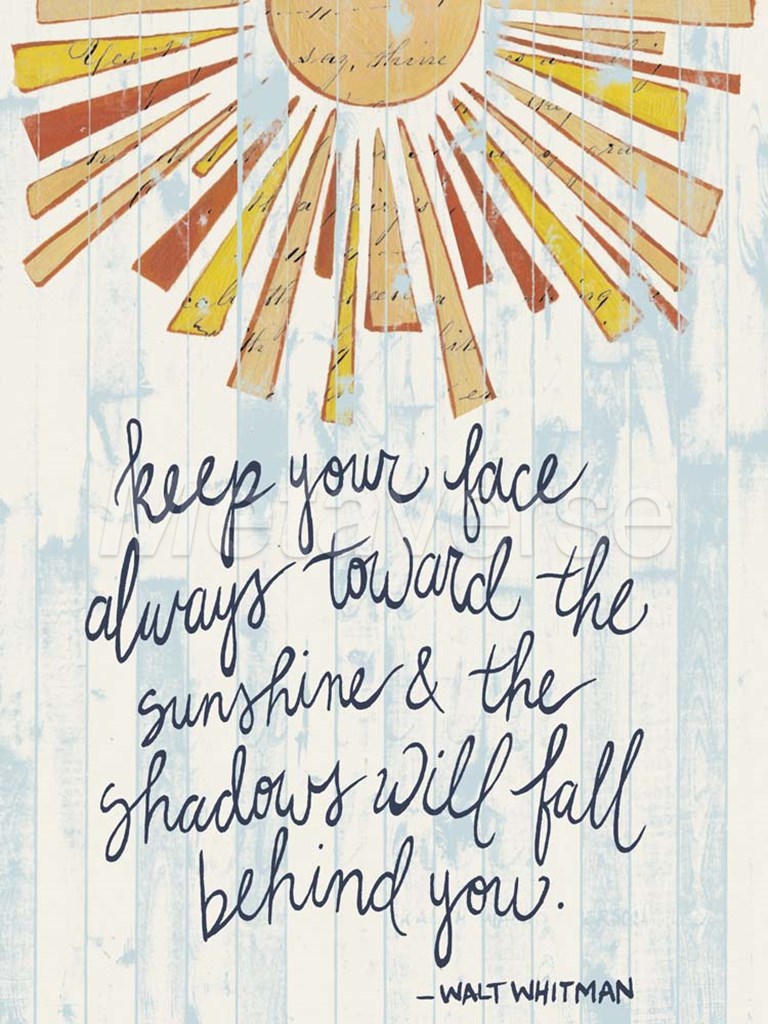 say, thine
Yes
keep your face
Metaverse
always toward the
sunshine & the
shadows will fall
behind you.
—WALT WHITMAN